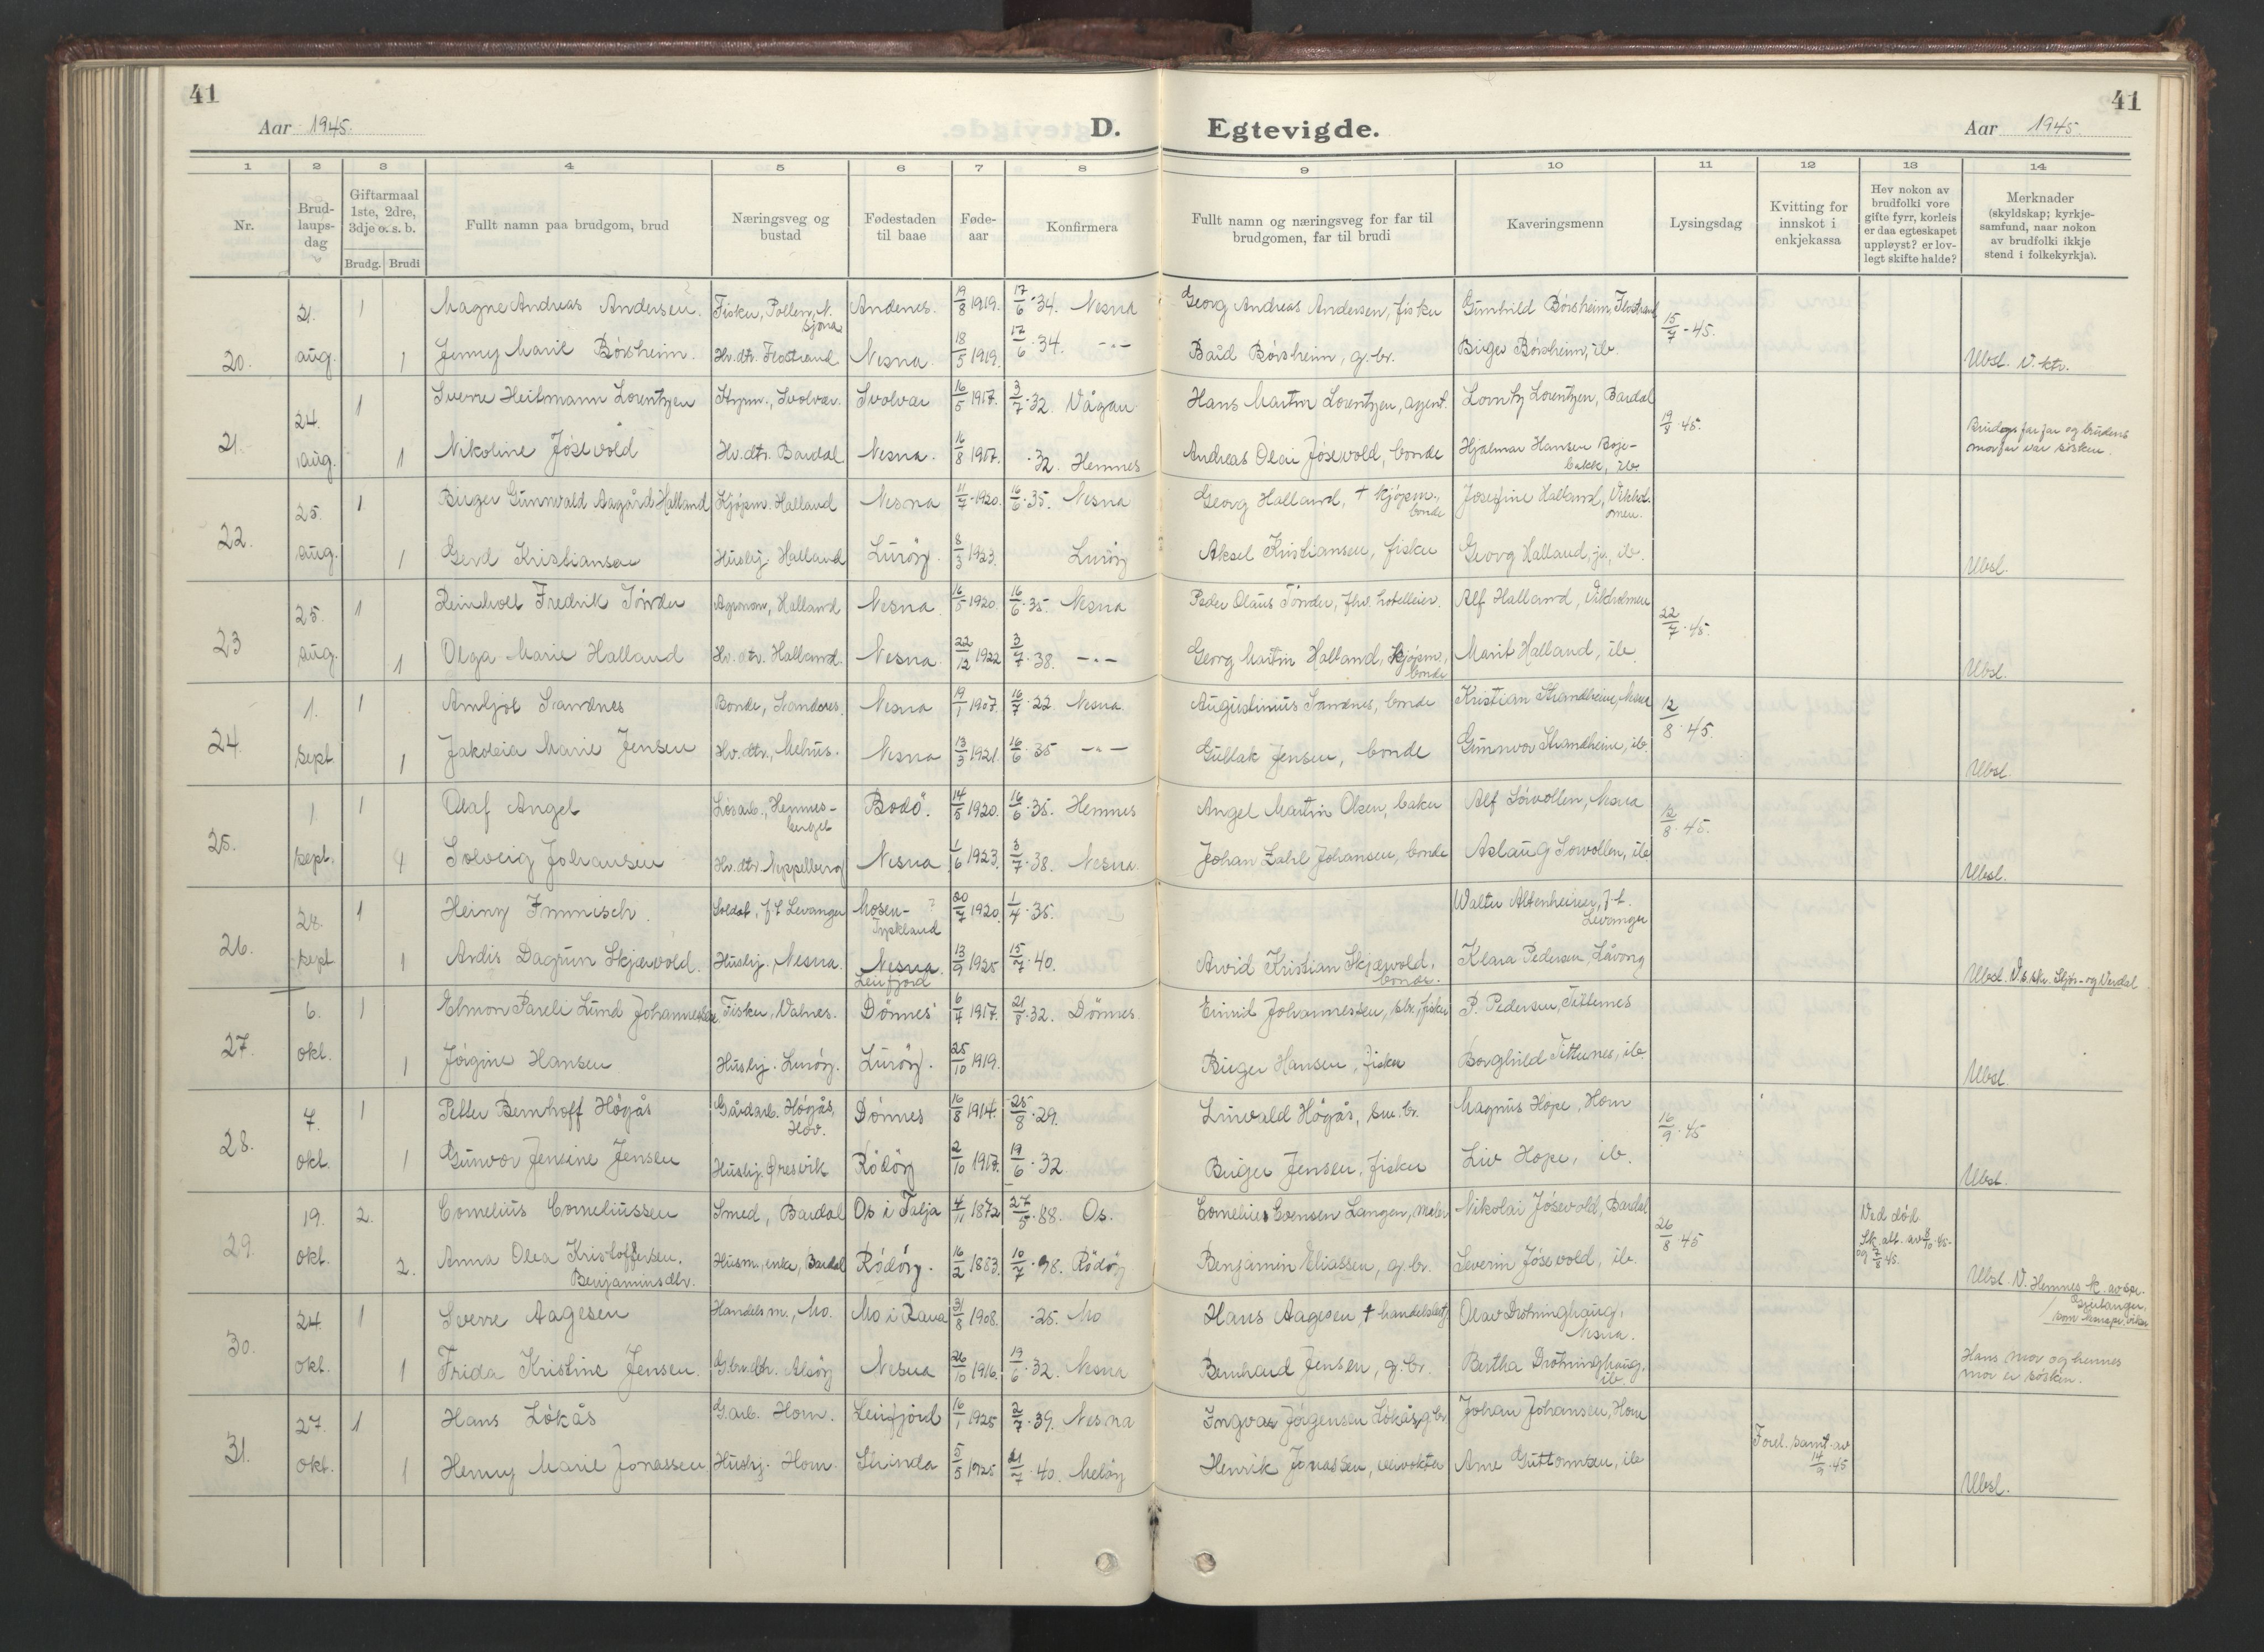 41
Aar 1945.
D.
Egtevigde.
Aar 1945.
41
1 2 3 4 5 6 7 8 9 10 11 12 13 14
Nr.
Brud-
laups-
dag
Giftarmaal
1ste, 2dre,
3dje o. s. b.
Brudg. Brudi
Fullt namn paa brudgom, brud
Næringsveg og
bustad
Fødestaden
til baae
Føde-
aar
Konfirmera
Fullt namn og næringsveg for far til
brudgomen, far til brudi
Kaveringsmenn
Lysingsdag
Kvitting for
innskot i
enkjekassa
Hev nokon av
brudfolki vore
gifte fyrr, korleis
er daa egteskapet
uppløyst? er lov-
legt skifte halde?
Merknader
(skyldskap; kyrkje-
samfund, naar nokon
av brudfolki ikkje
stend i folkekyrkja).
21. 1 Magne Andreas Andersen. Fisker, Pollen, N. Sjona Andenes. 19/8 1919. 17/6 34. Nesna Georg Andreas Andersen, fisker Gunhild Börsheim, Flostrand 15/7-45.
20. aug. 1 Jenny Marie Börsheim. Hv. dtr. Flostrand Nesna. 18/5 1919. 17/6 34. -"- Baid Börsheim, g.br. Birger Börsheim, ib. Ubsl. V. ktr.
24. 1 Sverre Heitmann Lorentzen Styrm., Svolvær. Svolvær 16/5 1917. 3/7 32. Vågan Hans Martin Lorentzen, agent. Lorntz Lorentzen, Bardal 19/8 45.
21. aug. 1 Nikoline Jósevold Hv. dtr. Bardal Nesna. 16/8 1917. 32. Hemnes Andreas Olai Jósevold, bonde Hjalmar Hansen Boje- bakk, ib. Brudegs farfar og brudens morfar var sösken.
25. 1 Birger Gunnvald Aagård Halland Kjöpm. Halland Nesna 11/7 1920. 16/6 35. Nesna Georg Halland, † kjöpm., bonde Josefine Halland, Vikhol- men.
22. aug. 1 Gerd Kristiansen Huslg. Halland Luröy. 8/3 1923. Luröy Aksel Kristiansen, fisker Georg Halland, jr., ib. Ubsl.
25. 1 Reinholt Fredrik Tönder Agronom, Halland Nesna 16/5 1920. 16/6 35. Nesna Peder Olaus Tönder, fhv. hotelleier. Alf Halland, Vikholmen 22/7 45.
23 aug. 1 Olga Marie Halland Hv. dtr. Halland. Nesna 22/12 1922 3/7 38. -"- Georg Martin Halland, kjöpm., bonde Marit Halland, ib. Ubsl.
1. 1 Arnljot Sandnes Bonde, Sandnes. Nesna 19/1 1907. 16/7 22. Nesna. Augustinus Sandnes, bonde Kristian Strandheim, Nesna 12/8 45.
24. sept 1 Jakobia Marie Jensen Hv. dtr., Mehus. Nesna 13/3 1921. 16/6 35 -"- Gullak Jensen, bonde Gunnvor Strandheim, ib. Ubsl.
1 1 Olaf Angel Lösarb., Hemnes- berget Bodö. 14/5 1920. 16/6 35. Hemnes Angel Martin Olsen, baker Alf Sörvollen, Nesna 12/8 45.
25. sept. 1 Solveig Johansen Hv. dtr. Neppelberg Nesna 1/6 1923. 3/7 38. Nesna. Johan Zahl Johansen, bonde Aslaug Sörvollen, ib Ubsl.
28. 1 Heinz Immisch. Soldat, f.t. Levanger Mosen- Tyskland ? 20/7 1920. 1/4 35. Walter Altenheimer, f.t. Levanger
26. sept 1 Ardis Dagrun Skjævold. Huslg., Nesna. Nesna. Leirfjord 13/9 1925 15/7 40. Arvid Kristian Skjævold, bonde. Klara Pedersen, Låvong Ubsl. V. s.skr. Stjör- og Verdal
6. 1 Elmon Pareli Lund Johannessen Fisker, Valnes. Dönnes 6/7 1917. 21/8 32. Dönnes Emil Johannessen, sbr., fisker P. Pedersen, Titternes
27. okt. 1 Jörgine Hansen Huslg. Luröy. Luröy. 25/10 1919. Birger Hansen, fisker Borghild Titternes, ib. Ubsl.
7. 1 Petter Bernhoff Högås Gårdarb. Högås, Hov. Dönnes 16/8 1914. 25/8 29. Lurvald Högås, sm.br. Magnus Hope, Hom 16/9 45
28. okt. 1 Gunvor Jensine Jensen Huslg. Øresvik Rödöy 2/10 1917. 19/6 32. Birger Jensen, fisker Liv Hope, ib. Ubsl.
19. 2. Cornelius Corneliussen Smed, Bardal Os i Falja 4/11 1872 27/5 88. Os. Cornelius Coensen Langen, maler Nikolai Jósevold, Bardal 26/8 45 Ved död. Sk. att. av 8/10 45- og 7/8 45.
29. okt. 2. Anna Olea Kristoffersen. Benjaminsdtr. Husm., enke, Bardal Rödöy. 16/2 1883. 10/7 98. Rödöy Benjamin Eliassen, g.br. Severin Jósevold, ib. Ubsl. V. Hemnes k. av spr.
24. 1 Sverre Aagesen Handelsm., Mo. Mo i Rana 31/8 1908. 25. Mo Hans Aagesen, † handelsbest. Olav Drotninghaug, Nesna.
30. okt. 1 Frida Kristine Jensen. G.br.dtr. Alsöy Nesna 26/10 1916. 19/6 32. Nesna Bernhard Jensen, g.br. Bertha Drotninghaug, ib. Hans mor og hennes mor er sösken.
27. 1 Hans Lökås G.arb. Hom. Leirfjord 16/1 1925 2/7 39. Nesna Ingvar Jörgensen Lökås, g.br. Johan Johansen, Hom
31. okt. 1 Henny Marie Jonassen Huslg. Hom. Strinda 5/5 1925 21/7 40. Melöy Henrik Jonassen, Arne Guttormsen, ib Forel. samt. av 14/9 45 Ubsl.